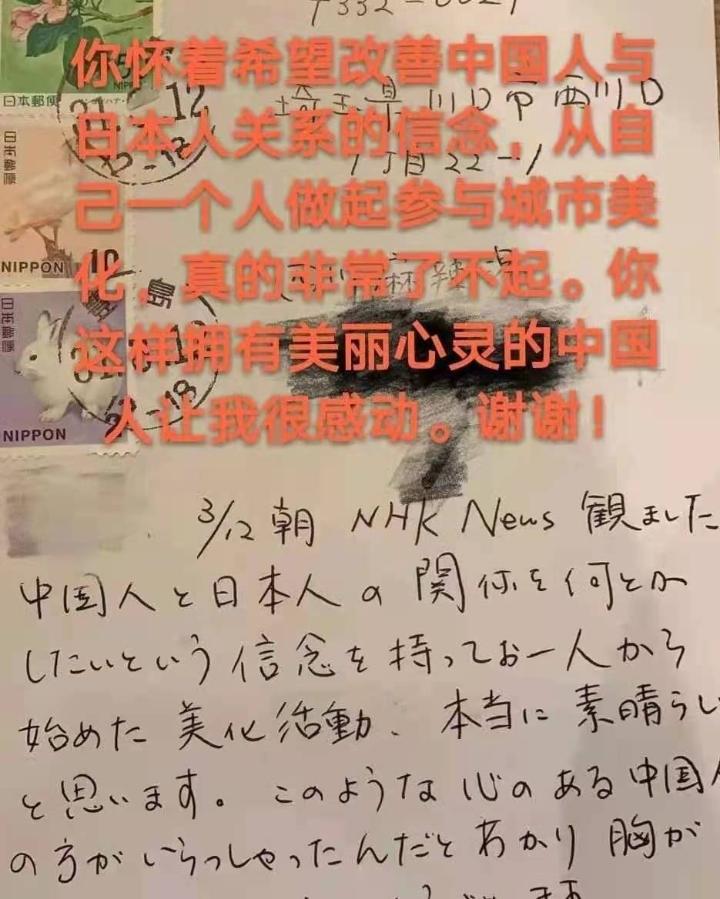 〒332-0021
埼玉県川口市西川口
1丁目22-1
日本郵便
NIPPON
日本郵便
NIPPON 10
日本郵便
NIPPON
你怀着希望改善中国人与
日本人关系的信念，从自
己一个人做起参与城市美
化，真的非常了不起。你
这样拥有美丽心灵的中国
人让我很感动。谢谢！
3/12 朝 NHK News 観ました
中国人と日本人の関係を何とか
したいという信念を持ってお一人から
始めた美化活動、本当に素晴らし
と思います。このような心のある中国人
の方がいらっしゃったんだとわかり胸が